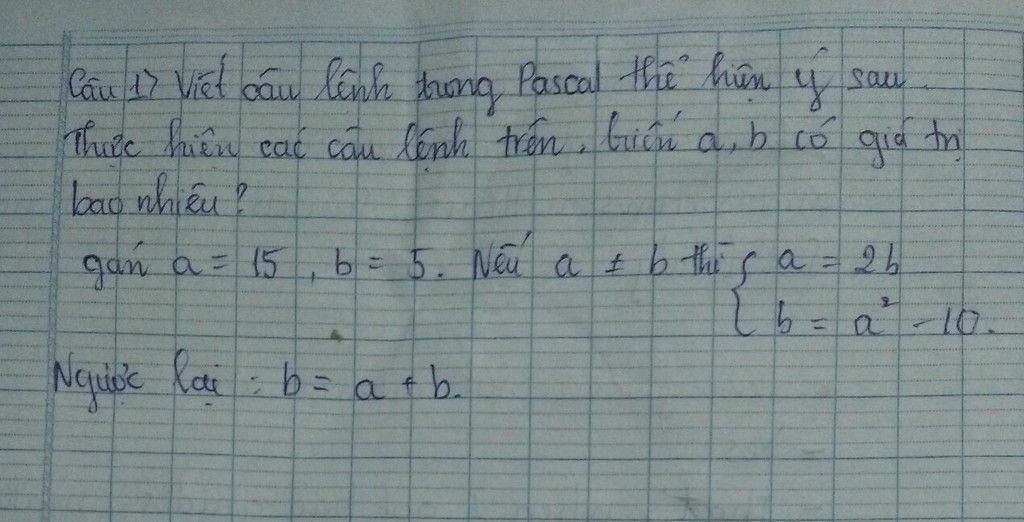 Câu 1> Viết câu lệnh trong Pascal thể hiện ý sau.
Thực hiện các câu lệnh trên, biến a, b có giá trị
bao nhiêu?
gán a = 15, b = 5. Nếu a ≠ b thì { a = 2b
b = a² - 10.
Ngược lại : b = a + b.